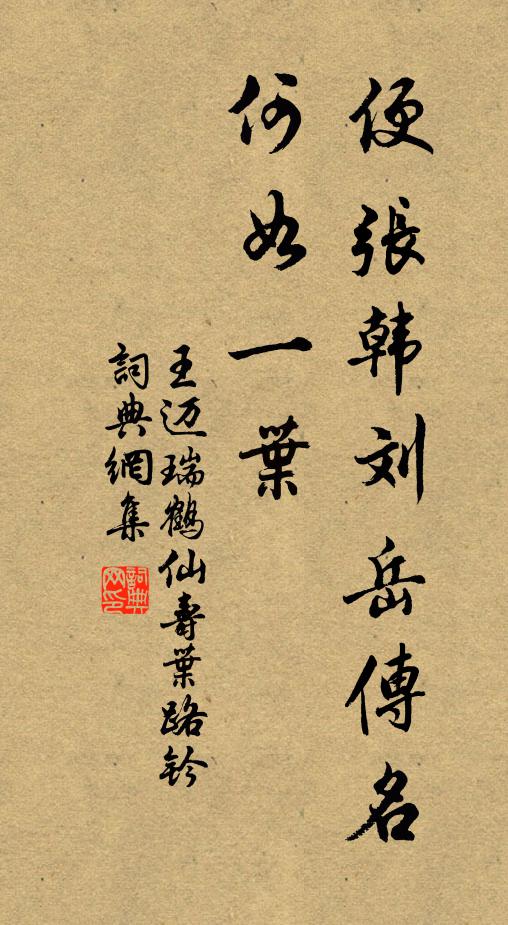 便張韩刘岳傳名
何如一葉
王迈瑞鶴仙壽葉路鈐
詞典網集
詞典网印